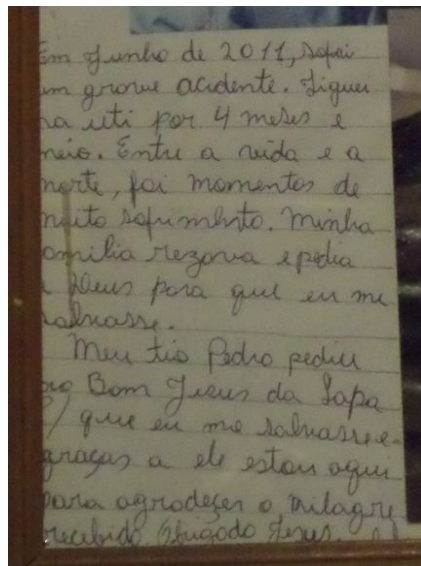 Em Junho de 2011, sofri
um grave acidente. Fiquei
na uti por 4 meses e
meio. Entre a vida e a
morte, foi momentos de
muito sofrimento. Minha
familia rezava e pedia
a Deus para que eu me
salvasse.
Meu tio Pedro pediu
ao Bom Jesus da Lapa
que eu me salvasse e
graças a ele estou aqui
para agradeçer o milagre
recebido. Obrigado Jesus.